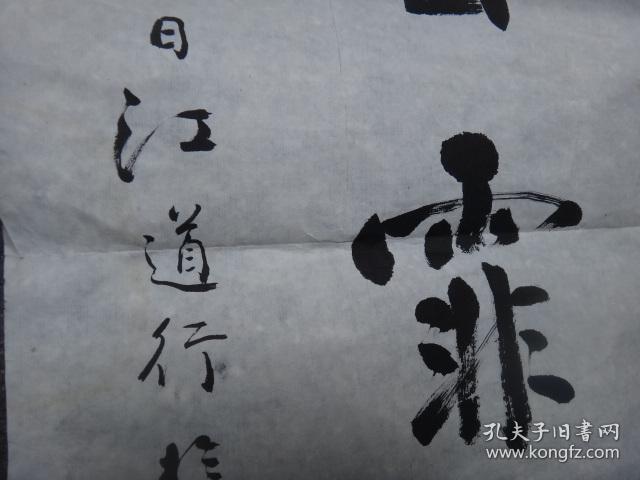 霏
日江道行於
孔夫子旧書网
www.kongfz.com